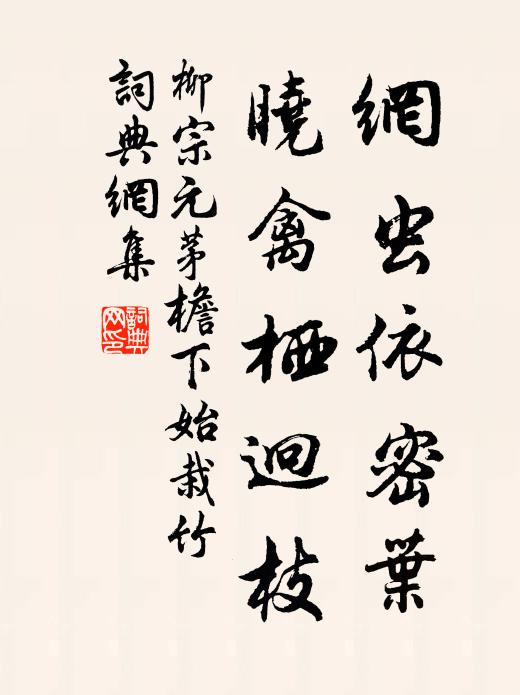 網虫依密葉
曉禽栖迥枝
柳宗元茅檐下始栽竹
詞典網集
詞典
网印